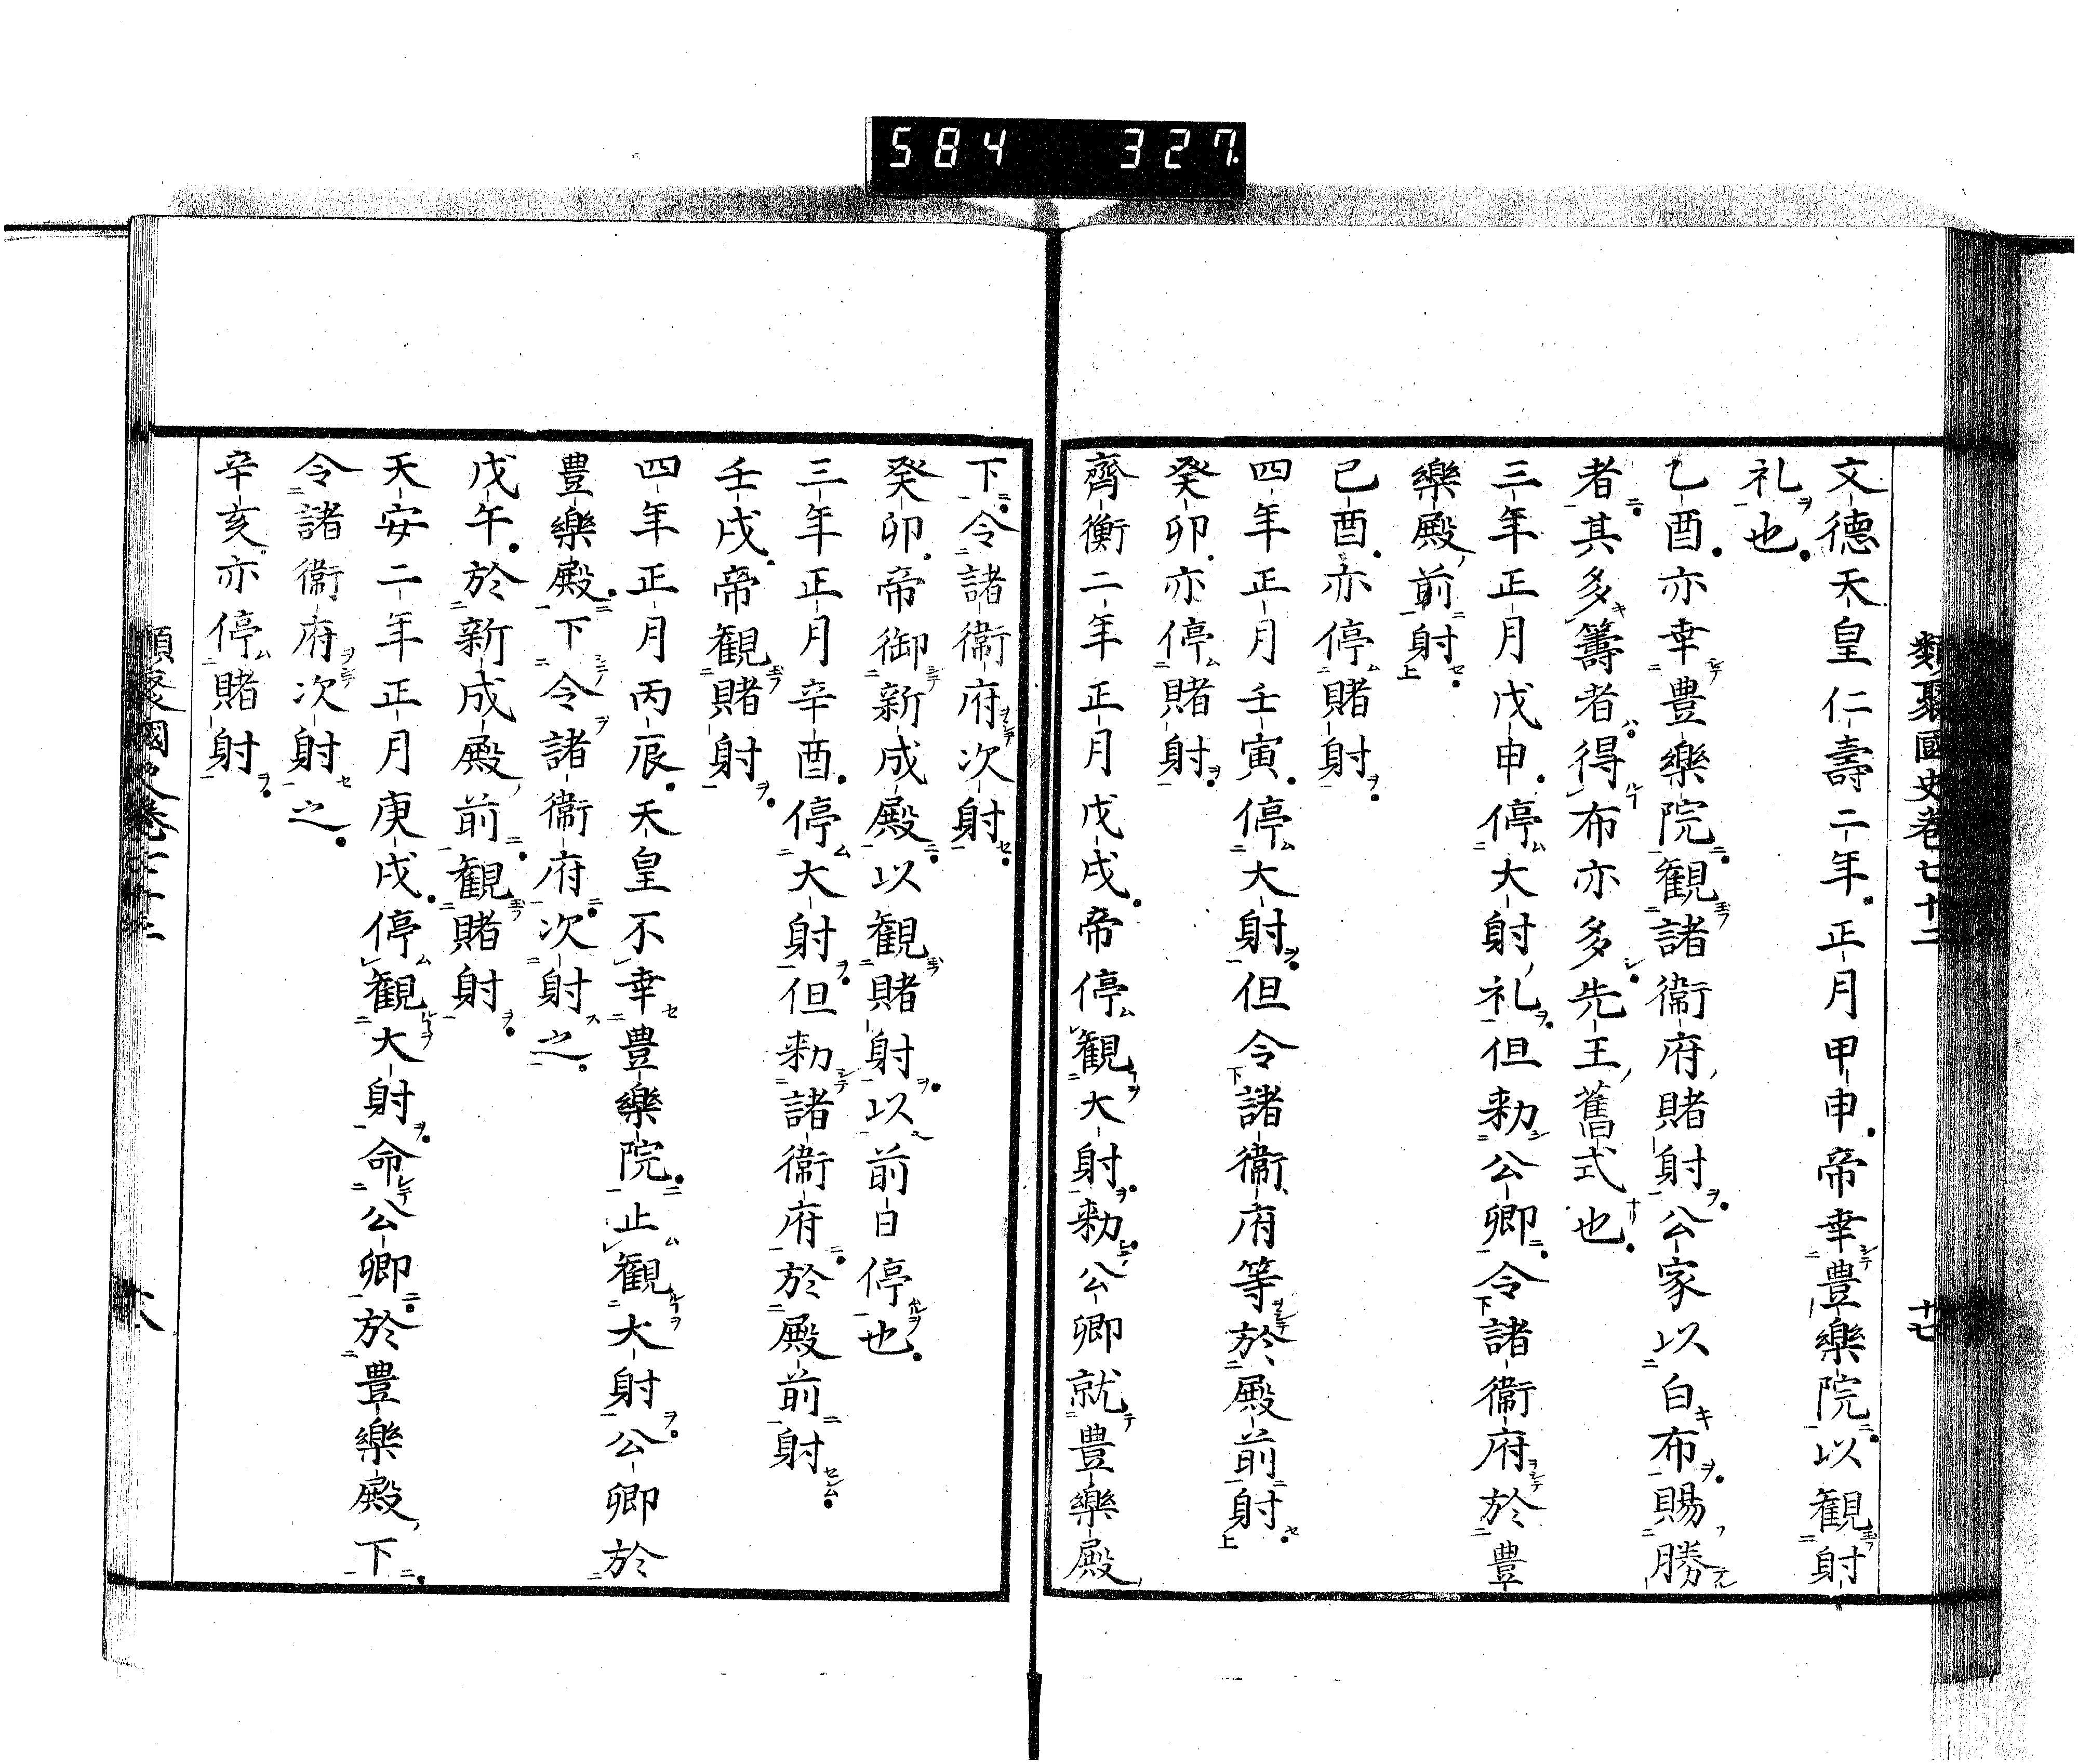 584 327.
類聚國史卷七十二
十七
文德天皇仁壽二年正月甲申帝幸豊樂院以観射
礼也
乙酉亦幸豊樂院観諸衞府賭射公家以白布賜勝
者其多籌者得布亦多先王舊式也
三年正月戊申停大射礼但勑公卿令諸衞府於豊
樂殿前射
己酉亦停賭射
四年正月壬寅停大射但令諸衞府等於殿前射
癸卯亦停賭射
齊衡二年正月戊戌帝停観大射勑公卿就豊樂殿
下令諸衞府次射
癸卯帝御新成殿以観賭射以前日停也
三年正月辛酉停大射但勑諸衞府於殿前射
壬戌帝観賭射
四年正月丙辰天皇不幸豊樂院止観大射公卿於
豊樂殿下令諸衞府次射之
戊午於新成殿前観賭射
天安二年正月庚戌停観大射命公卿於豊樂殿下
令諸衞府次射之
辛亥亦停賭射